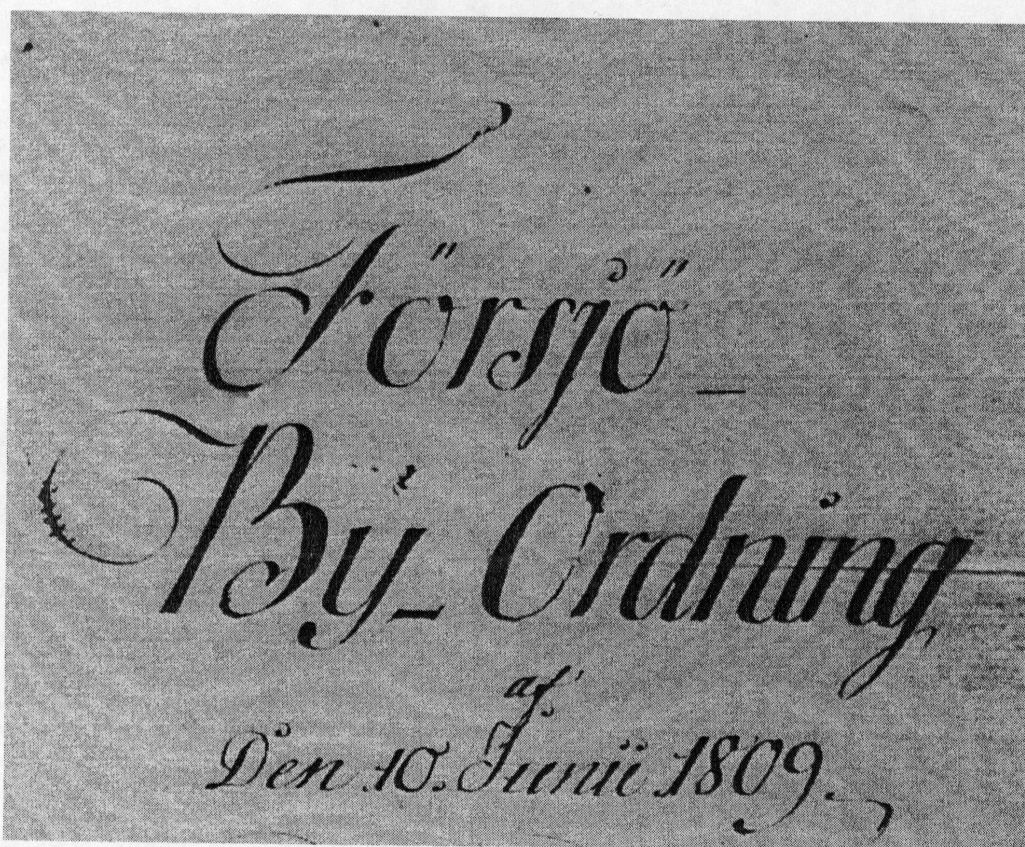 Försjö-
Bÿ-Ordning
af
Den 10. Junii 1809.